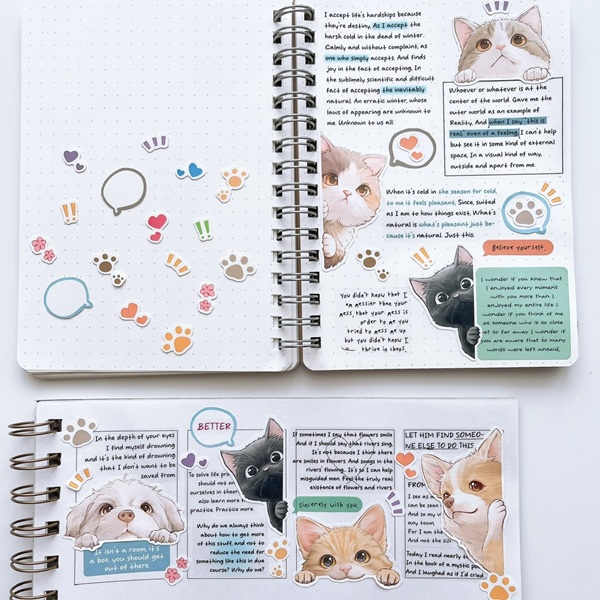 I accept life's hardships because
they're destiny. As I accept the
harsh cold in the dead of winter.
Calmly and without complaint, as
one who simply accepts. And finds
joy in the fact of accepting. In
the sublimely scientific and difficult
fact of accepting the inevitably
natural. An erratic winter, whose
laws of appearing are unknown to
me. Unknown to us all.
Whoever or whatever is at the
center of the world. Gave me the
outer world as an example of
Reality. And when I say "this is
real" even of a feeling, I can't help
but see it in some kind of external
space. In a visual kind of way,
outside and apart from me.
When it's cold in the season for cold,
to me it feels pleasant. Since, suited
as I am to how things exist. What's
natural is what's pleasant just be-
cause it's natural. Just this
Believe yourself.
You didn't know that I
am messier than your
mess, that your mess is
order to me you
tried to mess me up
but you didn't know I
thrive in chaos.
I wonder if you knew that
I enjoyed every moment
with you more than I
enjoyed my entire life I
wonder if you think of me
as someone who is so close
yet so far away I wonder if
you are aware that so many
words were left unsaid.
In the depth of your eyes
I find myself drowning
and it's the kind of drowning
that I don't want to be
saved from
It isn't a room, it's
a box you should get
out of there.
BETTER
To solve life pro
should not
ourselves in them
also learn more
practice. Practice more.
Why do we always think
about how to get more
of this stuff, and not to
reduce the need for
something like this in due
course? Why do we?
If sometimes I say that flowers smile
And if I should say that rivers sing,
It's not because I think there
are smiles in flowers. And songs in the
rivers' flowing. It's so I can help
misguided men. Feel the truly real
existence of flowers and rivers
Sincerely wish you.
LET HIM FIND SOMEO-
NE ELSE TO DO THIS
FROM
I see as
can be seen
And so my
any town.
For I am the
And not the
Today I read nearly
In the book of a mystic po
And I laughed as if I'd cried